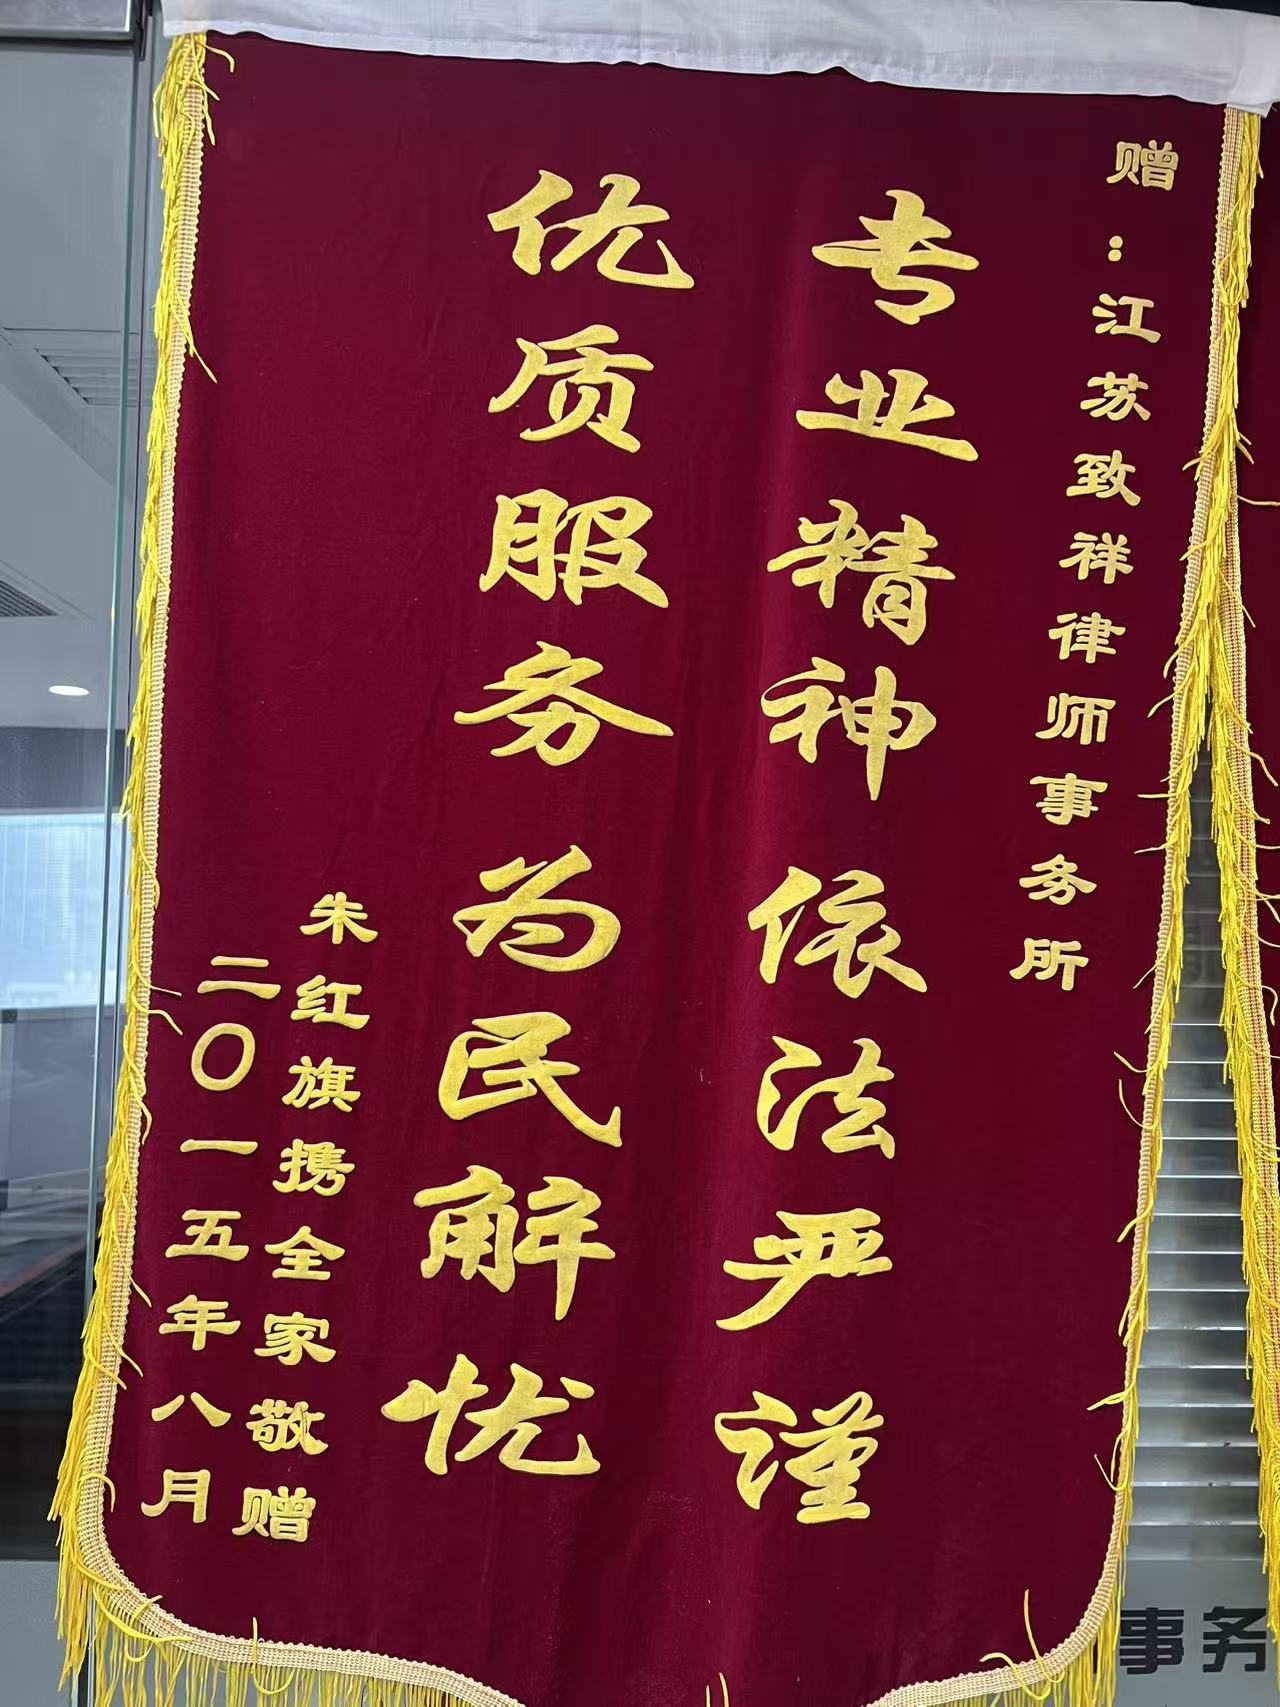 赠：江苏致祥律师事务所
专业精神 依法严谨
优质服务 为民解忧
朱红旗携全家敬赠
二〇一五年八月
事务